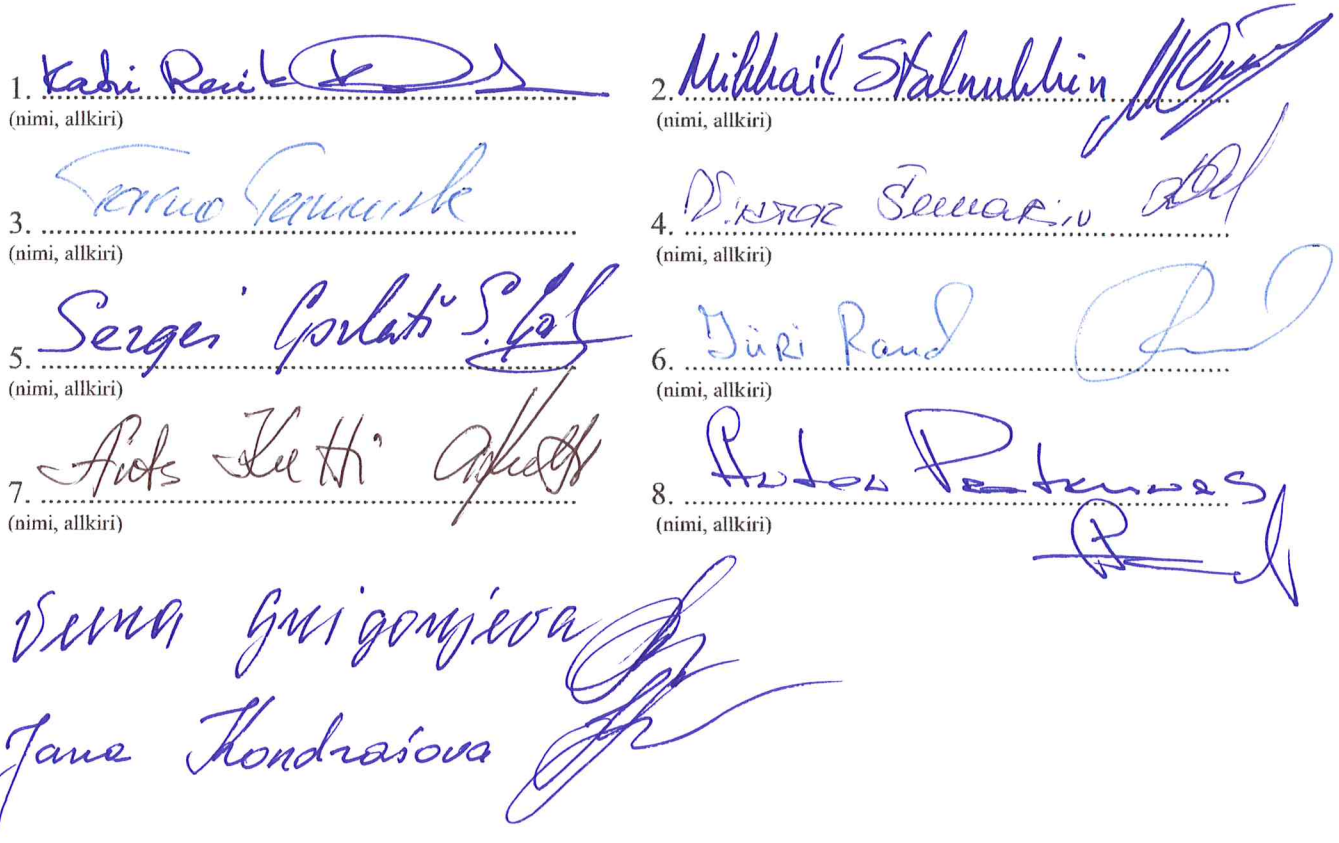 1. Katri Raik
(nimi, allkiri)
2. Mihhail Stalnuhhin
(nimi, allkiri)
3. Tarmo Tammiste
(nimi, allkiri)
4. Viktor Šemarin
(nimi, allkiri)
5. Sergei Gorlatš S. Gor
(nimi, allkiri)
6. Jüri Rand
(nimi, allkiri)
7. Ants Kutti
(nimi, allkiri)
8. Anton
(nimi, allkiri)
Grigorjeva
Jana Kondrašova